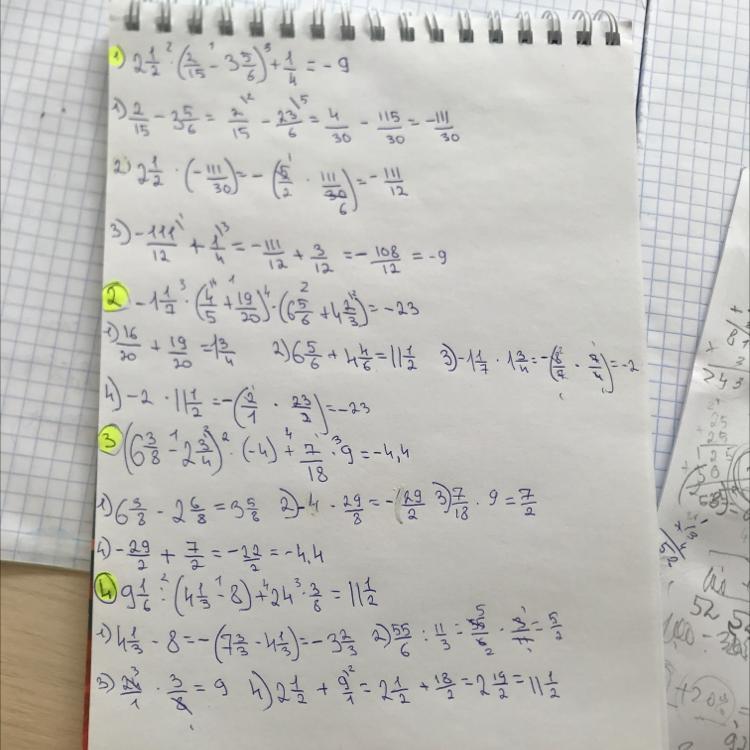 1) 2 1/2 · (2/15 - 3 5/6) + 1/4 = -9
1) 2/15 - 3 5/6 = 2/15 - 23/6 = 4/30 - 115/30 = -111/30
2) 2 1/2 · (-111/30) = -(5/2 · 111/30) = -111/12
3) -111/12 + 1/4 = -111/12 + 3/12 = -108/12 = -9
2 -1 1/7 · (4/5 + 19/20) · (6 5/6 + 4 2/3) = -23
1) 16/20 + 19/20 = 1 3/4 2) 6 5/6 + 4 4/6 = 11 1/2 3) -1 1/7 · 1 3/4 = -(8/7 · 7/4) = -2
4) -2 · 11 1/2 = -(2/1 · 23/2) = -23
3 (6 3/8 - 2 3/4) · (-4) + 7/18 · 9 = -4,4
1) 6 3/8 - 2 6/8 = 3 5/8 2) -4 · 29/8 = -(29/2 3) 7/18 · 9 = 7/2
4) -29/2 + 7/2 = -22/2 = -4,4
4 9 1/6 : (4 1/3 - 8) + 24 · 3/8 = 11 1/2
1) 4 1/3 - 8 = -(7 3/3 - 4 1/3) = -3 2/3 2) 55/6 : 11/3 = 55/6 · 3/11 = 5/2
3) 24/1 · 3/8 = 9 4) 2 1/2 + 9/1 = 2 1/2 + 18/2 = 2 19/2 = 11 1/2
81
243
25
25
125
52 52
+20%=